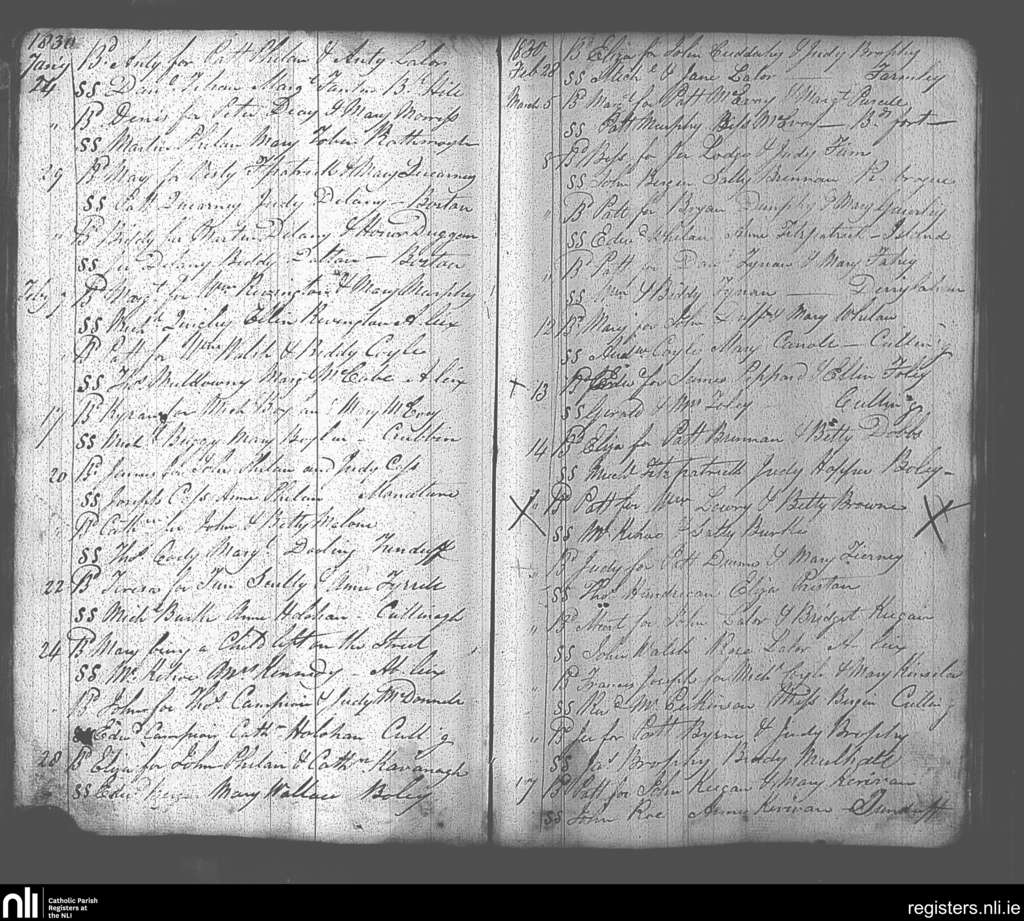 1830
Jany Bd July for Patt Phelan & Anty Lalor
24 SS Danl Marg Bn Hill
" Bd Denis for Peter Deay & Mary Morriss
SS Martin Phelan Mary Tobin Rathmoyle
29 Bd Mary for Fitzpatrick & Mary Quearney
SS Patt Quearney Judy Delany - Boston
" Bd Biddy for Martin Delany & Honor Duggan
SS Jer Delany Biddy Dalton - Boston
Feby 9 Bd Margt for Wm Revington & Mary Murphy
SS Michl Quigley Ellen Revington A. leix
" Bd Patt for Wm Walsh & Biddy Coyle
SS Thos Muldowny Margt McCabe A. leix
17 Bd Kyran for Mich and Mary McEvoy
SS Michl Mary - Crubbin
20 Bd James for John Phelan and Judy Cass
SS Joseph Cass Anne Phelan
" Bd Cathn for John & Betty Malone
SS Thos Cody Margt Dooling Tunduff
22 Bd Teresa for Tim Scully & Anne Tyrrell
SS Michl Burke Anne Holohan - Cullinagh
24 Bd Mary being a Child left on the Street
SS Mr Kehoe Mrs Kennedy - A. leix
" Bd John for Thos Campion & Judy McDonnell
SS Edwd Campion Cathn Holohan Cull g
28 Bd Eliza for John Phelan & Cathn Kavanagh
SS Edwd Mary Wallace Boley
1830 Bd Eliza for John Cuddahy & Judy Brophy
Feb 28 SS Michl & Jane Lalor - Farmley
March 5 Bd Margt for Patt McEvoy & Margt Purcell
SS Patt Murphy Bess McEvoy - Bn fort -
8 Bd Bess for Jer Lodge & Judy Finn
SS John Bergin Sally Brennan
" Bd Patt for Bryan Dunphy & Mary
SS Edwd Whelan Anne Fitzpatrick - Island
" Bd Patt for Danl Tynan & Mary Fahey
SS Wm & Biddy Tynan -
12 Bd Mary for John Duff & Mary Whelan
SS Andw Coyle Mary Canole - Culling
13 Bd Edwd for James Peppard & Ellen Foley
SS Gerald & Mrs Foley Culling
14 Bd Eliza for Patt Brennan & Betty Dobbs
SS Michl Fitzpatrick Judy Hopper Boley -
" Bd Patt for Wm Lewry & Betty Browne
SS Mr Kehoe & Sally Burke
" Bd Judy for Patt Dunne & Mary Tierney
SS Thos Hendrican Eliza Preston
" Bd for John Lalor & Bridget Keegan
SS John Walsh Lalor A - leix
" Bd Francis Joseph for Michl Coyle & Mary Kinsela
SS Revd Mr Miss Bergin Culling
" Bd Jer for Patt Byrne & Judy Brophy
SS Jas Brophy Biddy Mulhall
17 Bd Patt for John Keegan & Mary Kerivan
SS John Roe Anne Kerivan - Tunduff
nli
Catholic Parish
Registers at
the NLI
registers.nli.ie